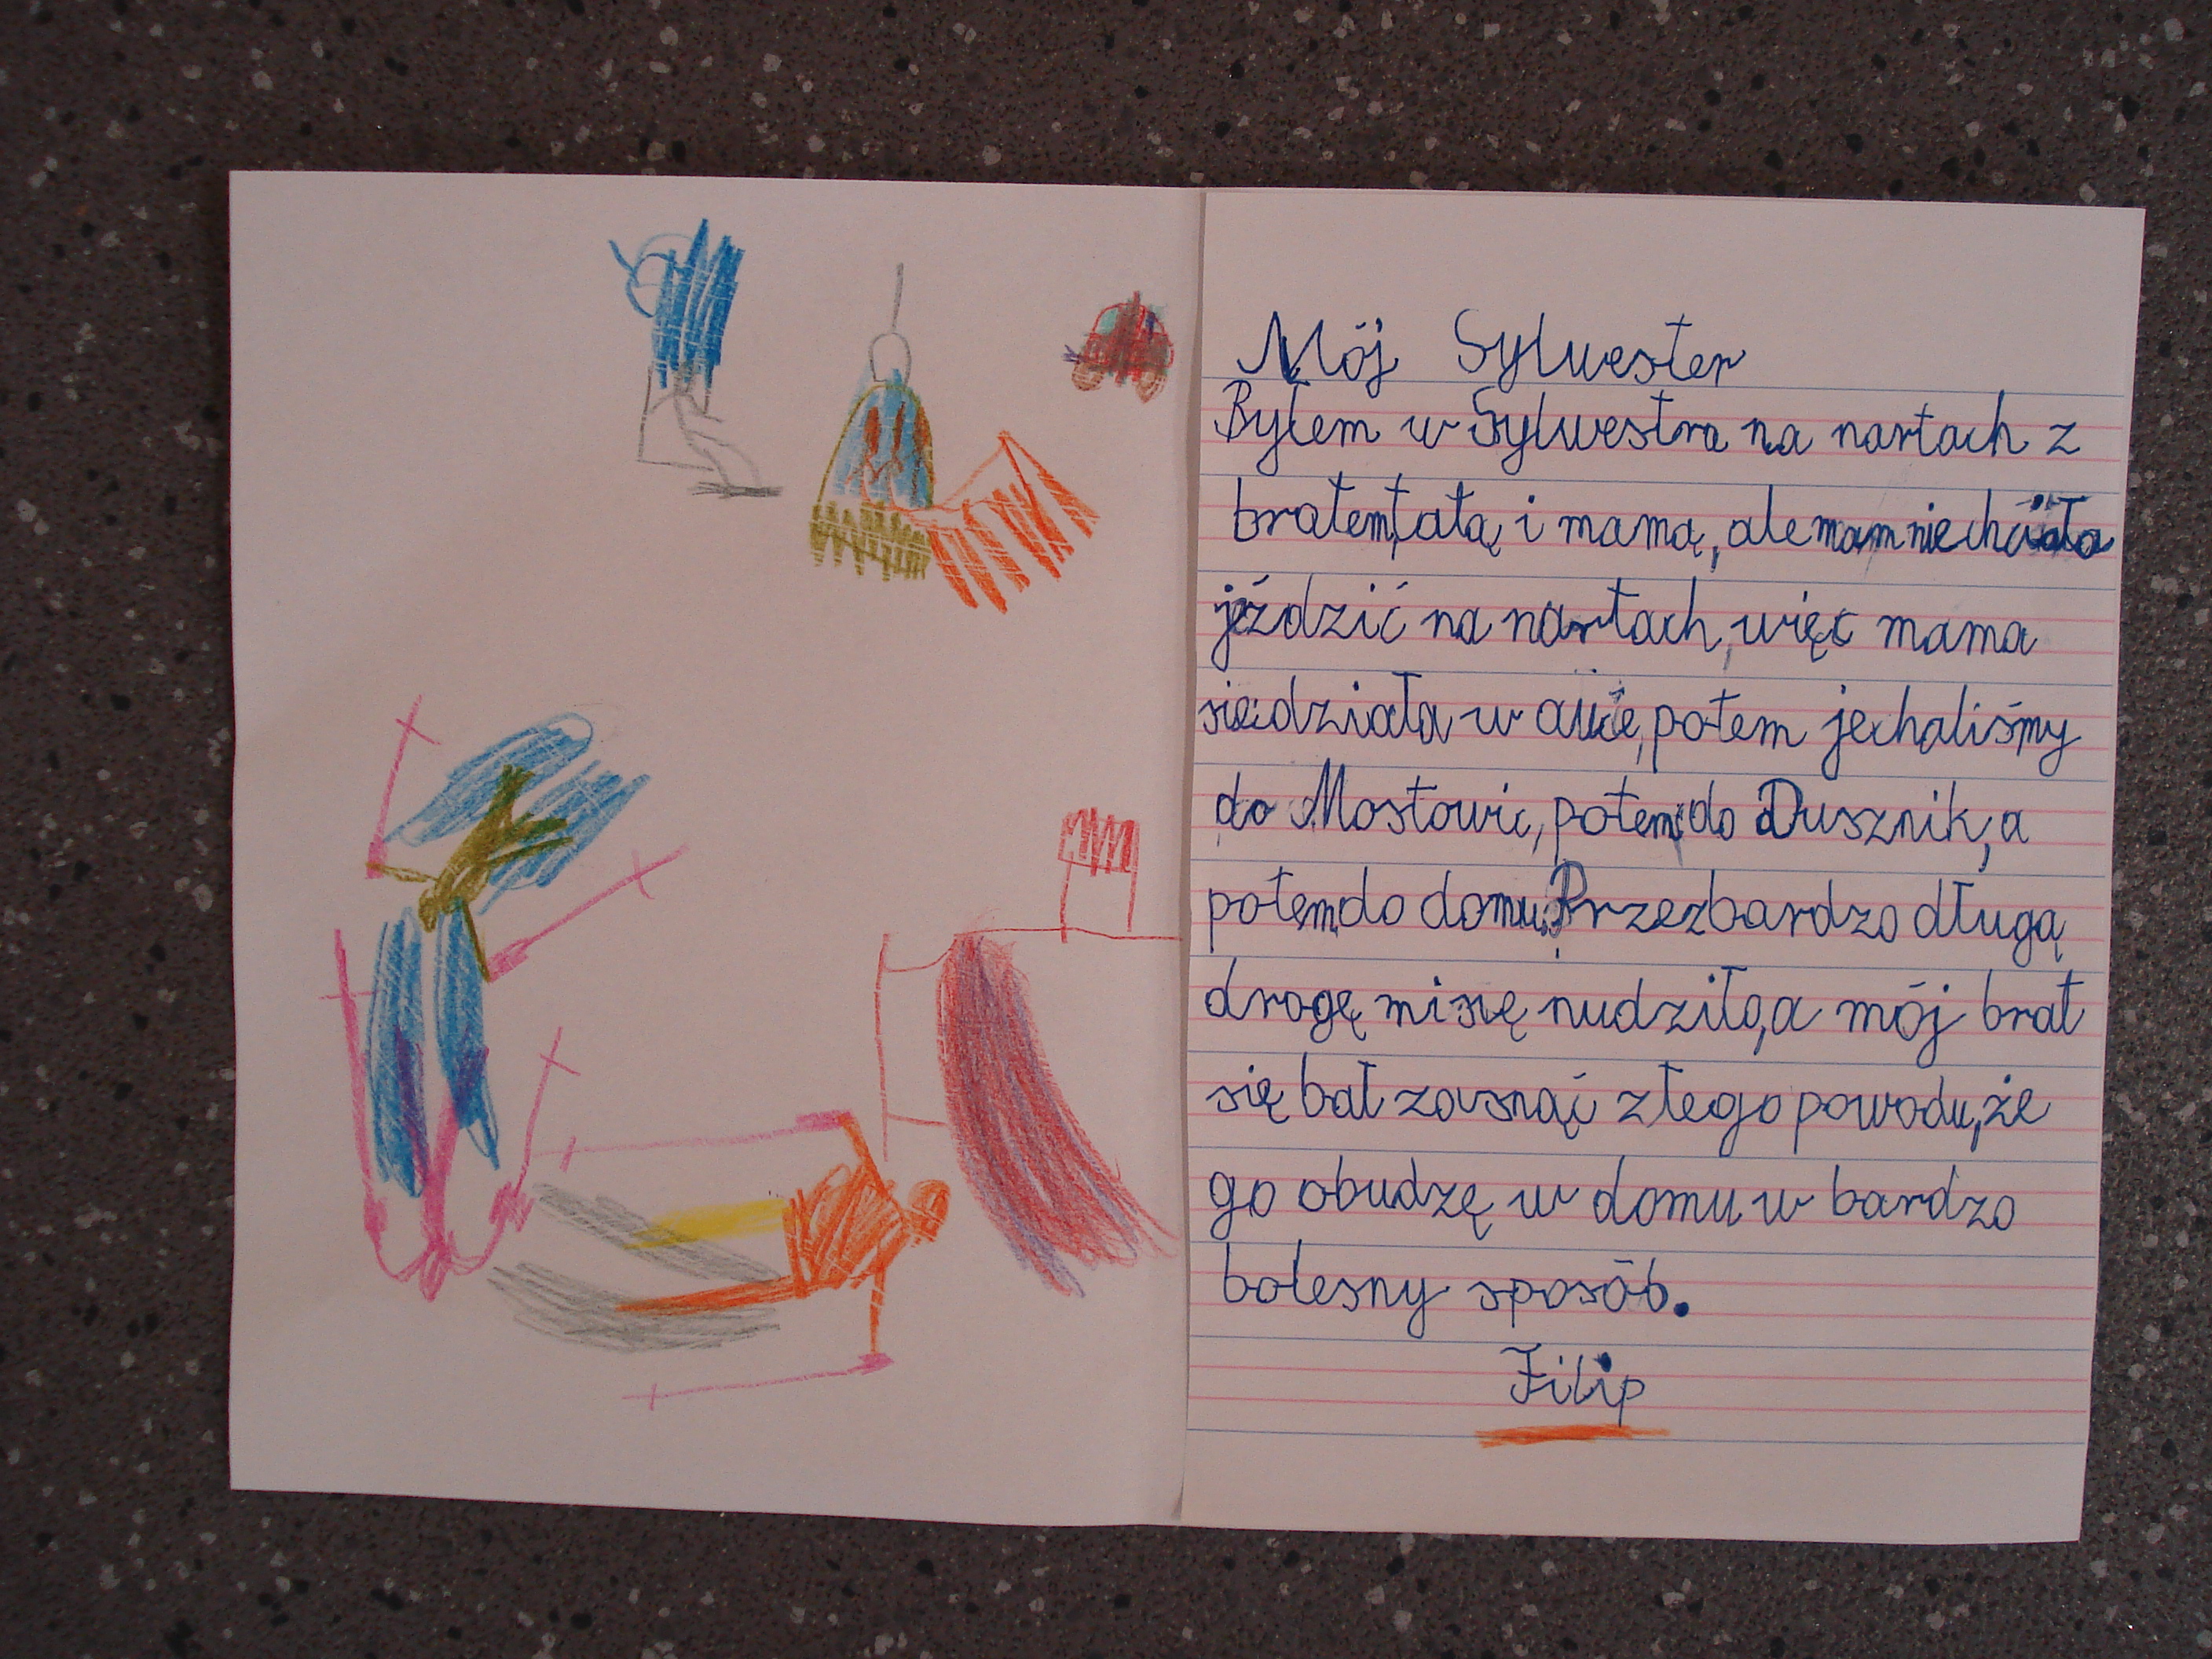 Mój Sylwester
Byłem w Sylwestra na nartach z
bratem, tatą i mamą, ale mam nie chciała
jeździć na nartach, więc mama
siedziała w aucie, potem jechaliśmy
do Mostowic, potem do Dusznik, a
potem do domu. Przez bardzo długą
drogę mi się nudziło, a mój brat
się bał zasnąć z tego powodu, że
go obudzę w domu w bardzo
bolesny sposób.
Filip